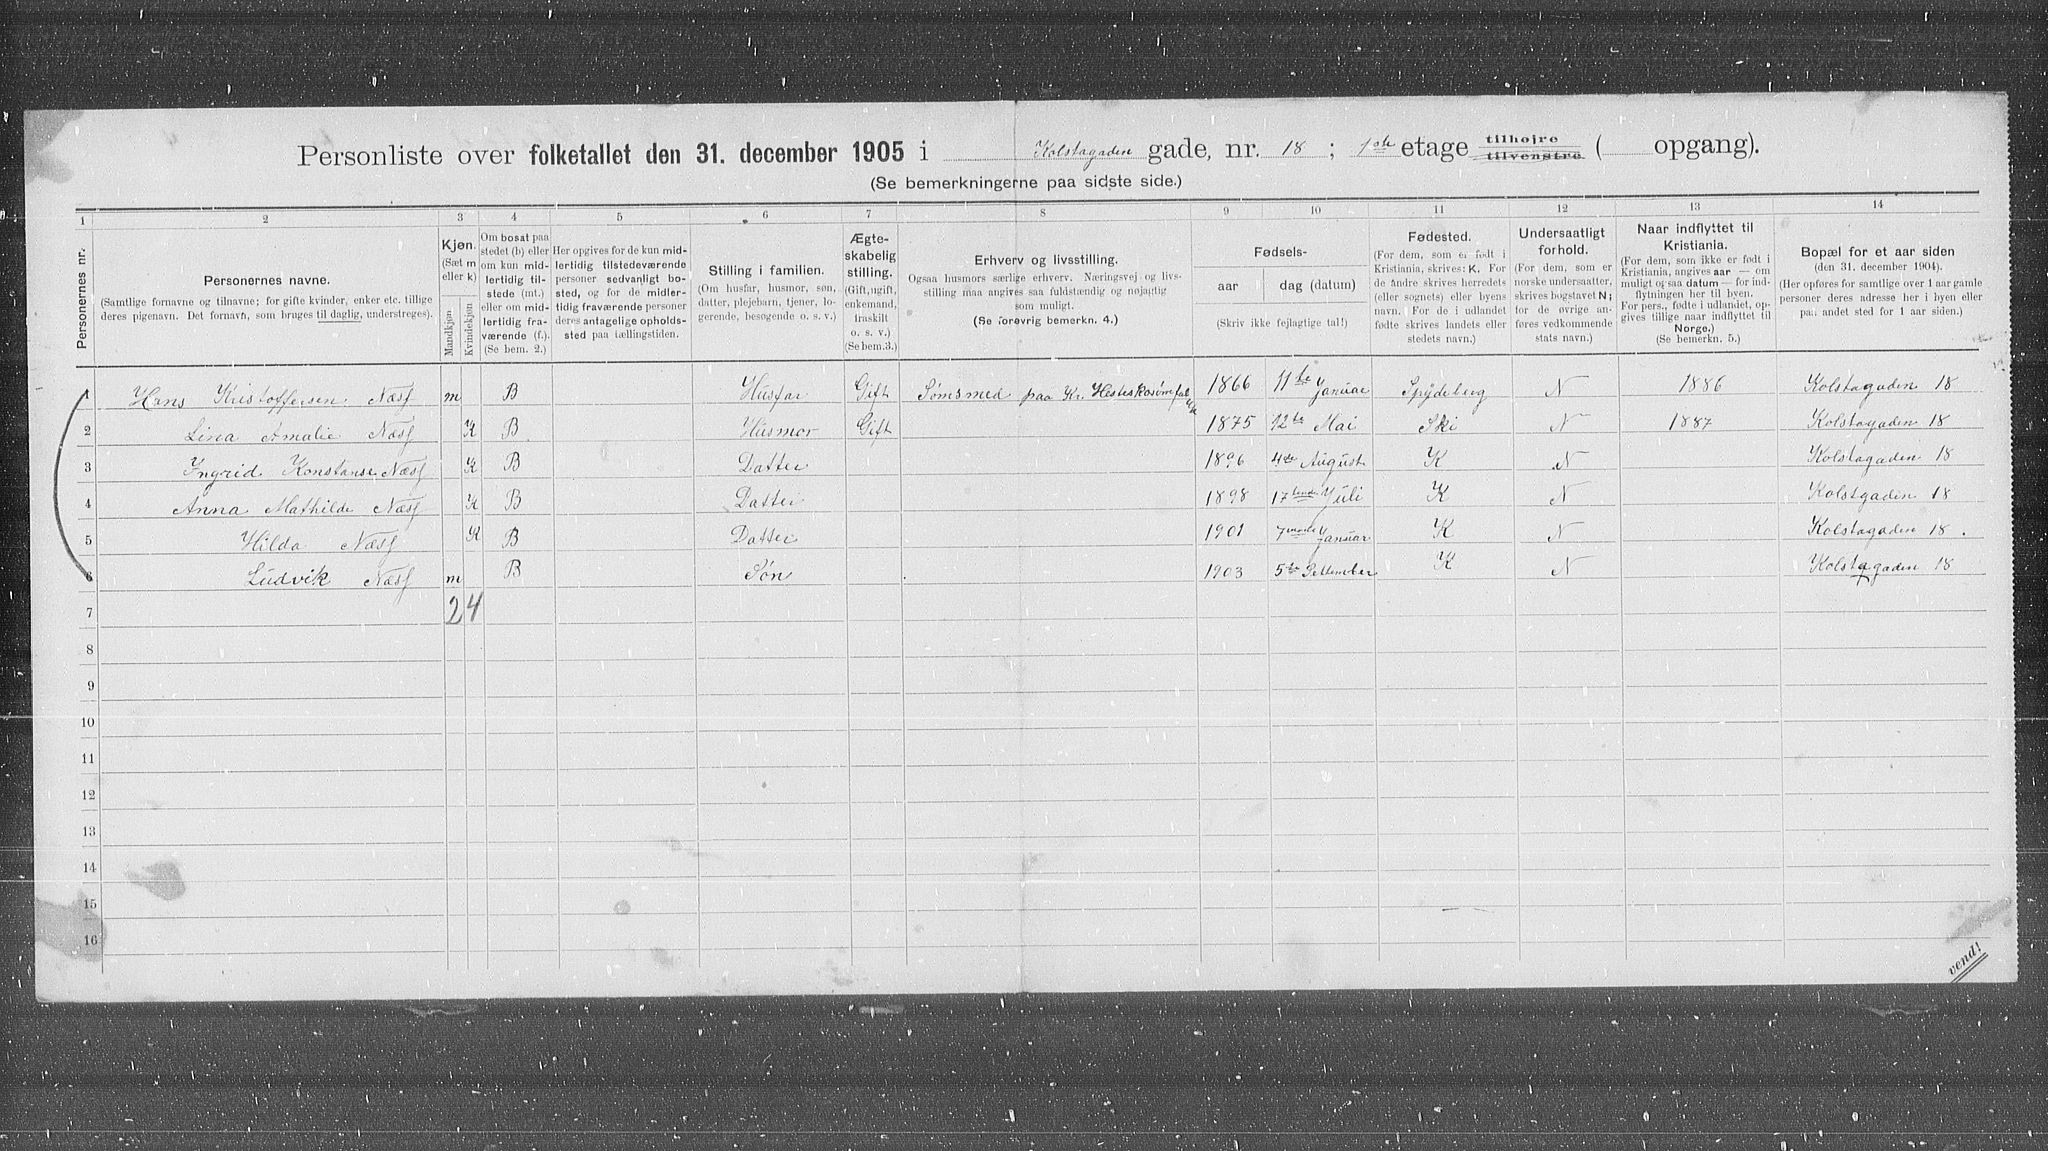 Personliste over folketallet den 31. december 1905 i Kolstagaden gade, nr. 18 ; 1ste etage tilhøjre tilvenstre ( opgang).
(Se bemerkningerne paa sidste side.)
1 2 3 4 5 6 7 8 9 10 11 12 13 14
Personernes nr.
Personernes navne.
(Samtlige fornavne og tilnavne; for gifte kvinder, enker etc. tillige
deres pigenavn. Det fornavn, som bruges til daglig, understreges).
Kjøn.
(Sæt m
eller k)
Mandkjøn
Kvindekjøn
Om bosat paa
stedet (b) eller
om kun mid-
lertidig til-
stede (mt.)
eller om mid-
lertidig fra-
værende (f.).
(Se bem. 2.)
Her opgives for de kun mid-
lertidig tilstedeværende
personer sedvanligt bo-
sted, og for de midler-
tidig fraværende personer
deres antagelige opholds-
sted paa tællingstiden.
Stilling i familien.
(Om husfar, husmor, søn,
datter, plejebarn, tjener, lo-
gerende, besøgende o. s. v.)
Ægte-
skabelig
stilling.
(Gift, ugift,
enkemand,
fraskilt
o. s. v.)
(Se bem.3.)
Erhverv og livsstilling.
Ogsaa husmors særlige erhverv. Næringsvej og livs-
stilling maa angives saa fuldstændig og nøjagtig
som muligt.
(Se forøvrig bemerkn. 4.)
Fødsels-
aar dag (datum)
(Skriv ikke fejlagtige tal!)
Fødested.
(For dem, som er født i
Kristiania, skrives: K. For
de andre skrives herredets
(eller sognets) eller byens
navn. For de i udlandet
fødte skrives landets eller
stedets navn.)
Undersaatligt
forhold.
(For dem, som er
norske undersaatter,
skrives bogstavet N;
for de øvrige an-
føres vedkommende
stats navn.)
Naar indflyttet til
Kristiania.
(For dem, som ikke er født i
Kristiania, angives aar — om
muligt ogsaa datum — for ind-
flytningen her til byen.
For pers., fødte i udlandet, op-
gives tillige naar indflyttet til
Norge.)
(Se bemerkn. 5.)
Bopæl for et aar siden
(den 31. december 1904).
(Her opføres for samtlige over 1 aar gamle
personer deres adresse her i byen eller
paa andet sted for 1 aar siden.)
1 Hans Kristoffersen Næss m B Husfar Gift Sømsmed paa Kr. Hesteskosømfab 1866 11te Januar Spydeberg N 1886 Kolstagaden 18
2 Lina Amalie Næss K B Husmor Gift 1875 12te Mai Ski N 1887 Kolstagaden 18
3 Ingrid Konstanse Næss K B Datter 1896 4de August K N Kolstagaden 18
4 Anna Mathilde Næss K B Datter 1898 17tende Juli K N Kolstgaden 18
5 Hilda Næss K B Datter 1901 7vende Januar K N Kolstagaden 18.
6 Ludvik Næss m B Søn 1903 5te September K N Kolstagaden 18
7 2 4
8
9
10
11
12
13
14
15
16
vend!